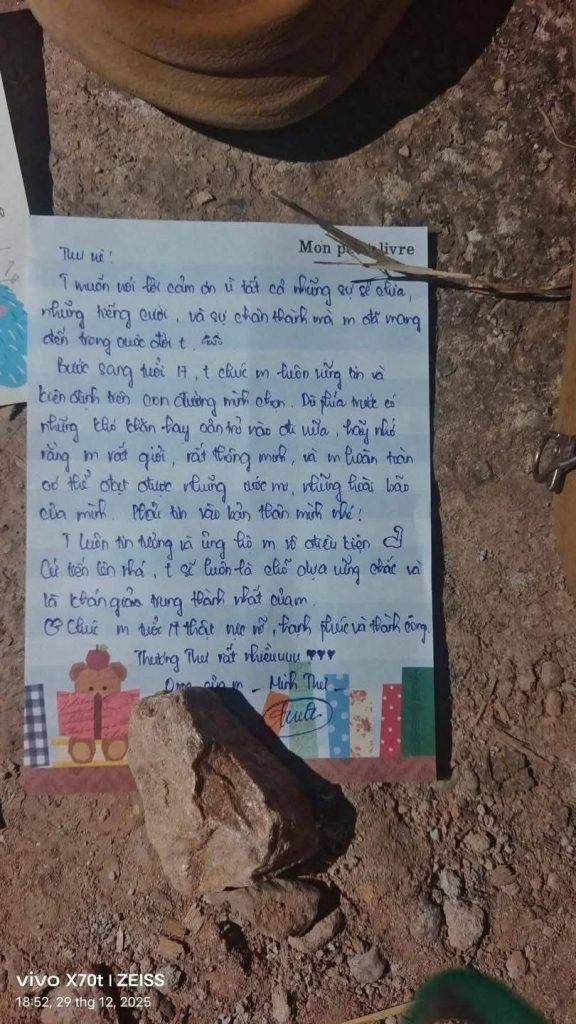 Mon petit livre
Thư nè!
T muốn nói lời cảm ơn vì tất cả những sự sẻ chia,
những tiếng cười, và sự chân thành mà m đã mang
đến trong cuộc đời t.
Bước sang tuổi 17, t chúc m luôn vững tin và
kiên định trên con đường mình chọn. Dù phía trước có
những khó khăn hay cản trở nào đi nữa, hãy nhớ
rằng m rất giỏi, rất thông minh, và m hoàn toàn
có thể đạt được những ước mơ, những hoài bão
của mình. Phải tin vào bản thân mình nhé!
T luôn tin tưởng và ủng hộ m vô điều kiện
Cứ tiến lên nhá, t sẽ luôn là chỗ dựa vững chắc và
là khán giả trung thành nhất của m.
Chúc m tuổi 17 thật rực rỡ, hạnh phúc và thành công.
Thương Thư rất nhiềuuuu ♥♥♥
của m _ Minh Thư _
vivo X70t | ZEISS
18:52, 29 thg 12, 2025